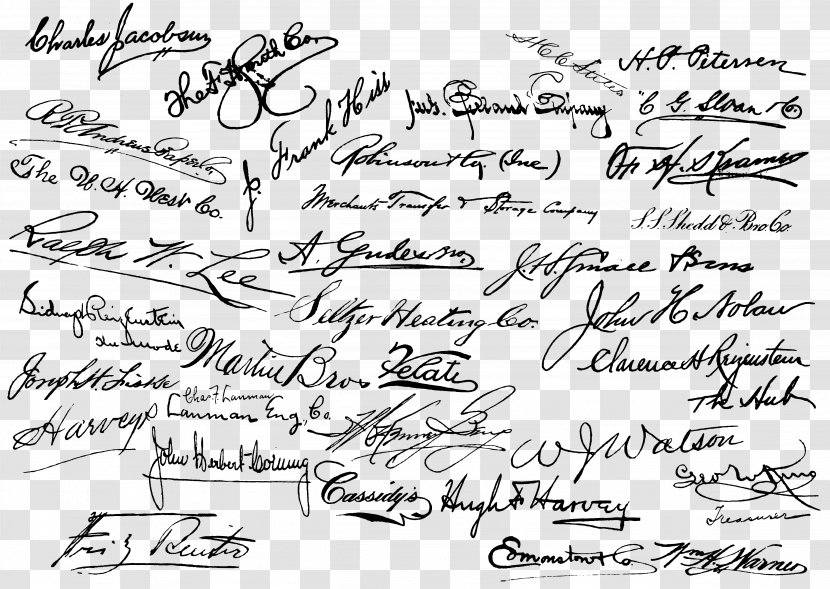 Charles Jacobsen
The F. H. Smith Co.
H. P. Petersen
Frank Hiss
Company
"C G. Sloan & Co
R. P. Andrews Paper Co.
Robinson & Co. (Inc)
The W. H. West Co.
Merchants Transfer & Storage Company
S. S. Shedd & Bro. Co.
Ralph W. Lee
A. Gude & Bro.
J. H. Small & Sons
Seltzer Heating Co.
John H Nolan
Sidney Reizenstein
Martin Bros
Velati
Clarence H Reizenstein
Joseph H.
Chas. F. Lanman
Lanman Eng. Co.
The Hub
Harveys
W J Watson
John Herbert Corning
Geo W King
Treasurer
Cassidy's
Hugh F Harvey
Fritz Reuter
Edmonston & Co.
Wm H. Warner